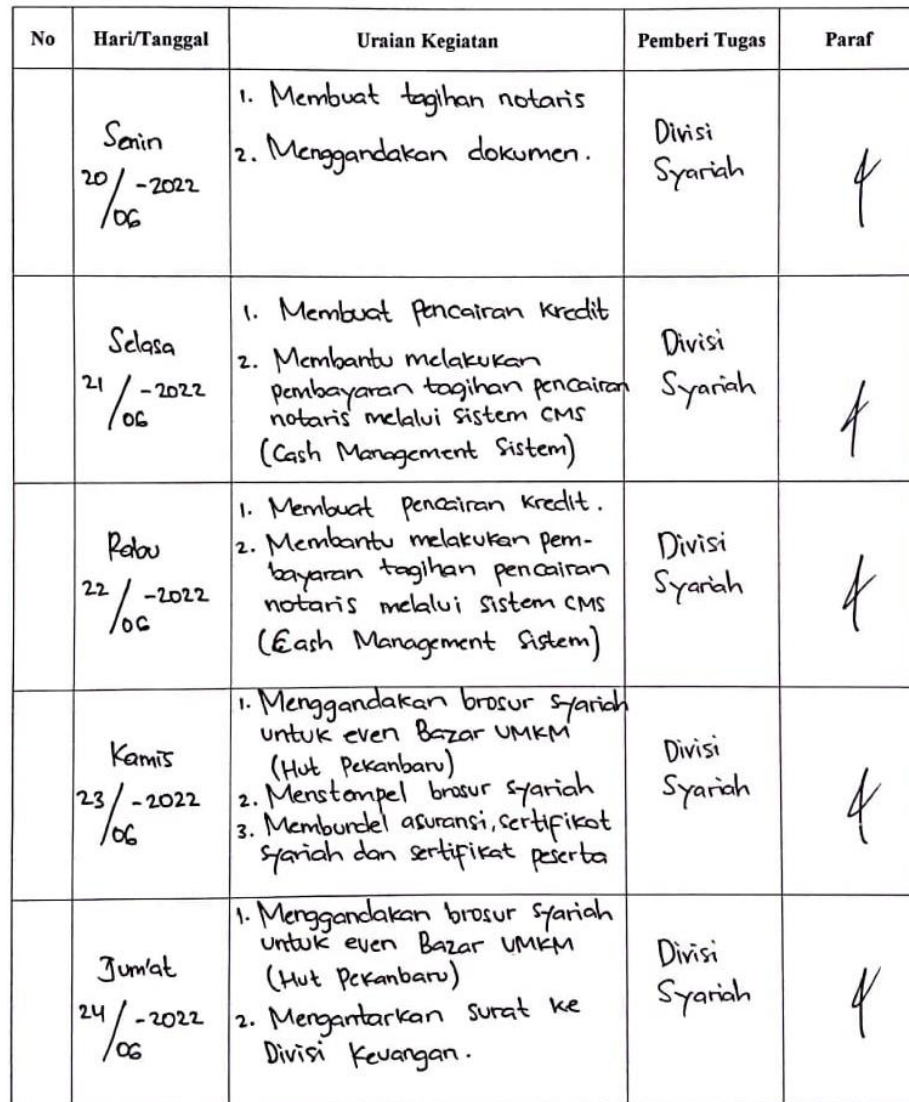 No Hari/Tanggal Uraian Kegiatan Pemberi Tugas Paraf
Senin
20/06-2022
1. Membuat tagihan notaris
2. Menggandakan dokumen.
Divisi
Syariah
Selasa
21/06-2022
1. Membuat Pencairan Kredit
2. Membantu melakukan
pembayaran tagihan pencairan
notaris melalui Sistem CMS
(Cash Management Sistem)
Divisi
Syariah
Rabu
22/06-2022
1. Membuat pencairan Kredit.
2. Membantu melakukan pem-
bayaran tagihan pencairan
notaris melalui Sistem CMS
(Cash Management Sistem)
Divisi
Syariah
Kamis
23/06-2022
1. Menggandakan brosur syariah
untuk even Bazar UMKM
(Hut Pekanbaru)
2. Menstempel brosur syariah
3. Membundel asuransi, sertifikat
syariah dan sertifikat peserta
Divisi
Syariah
Jum'at
24/06-2022
1. Menggandakan brosur syariah
untuk even Bazar UMKM
(Hut Pekanbaru)
2. Mengantarkan surat ke
Divisi Keuangan.
Divisi
Syariah